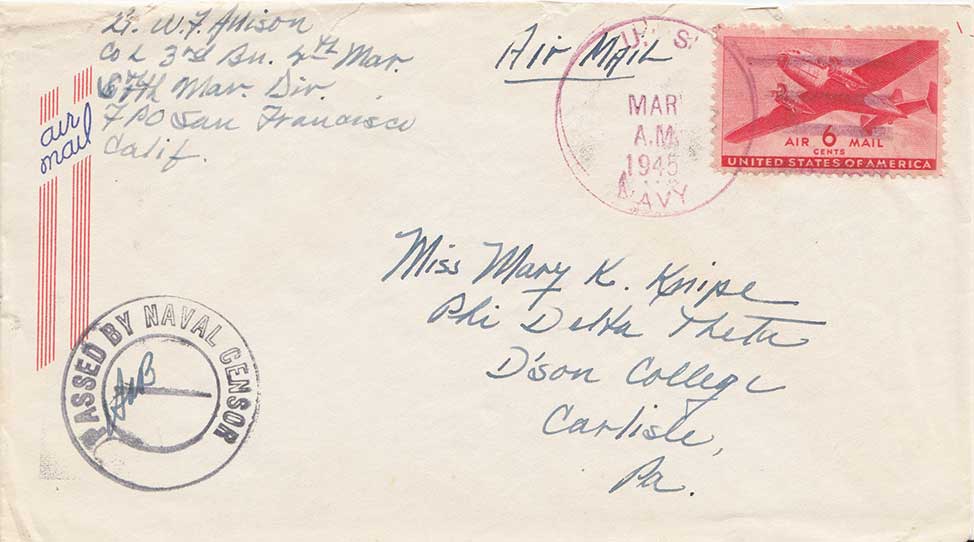 Lt. W. F. Allison
Co L 3rd Bn. 4th Mar.
6th Mar. Div.
FPO San Francisco
Calif.
air
mail
Air Mail
U. S.
MAR
A.M.
1945
NAVY
AIR 6 MAIL
CENTS
UNITED STATES OF AMERICA
Miss Mary K. Knipe
Phi Delta Theta
D'son College
Carlisle,
Pa.
PASSED BY NAVAL CENSOR